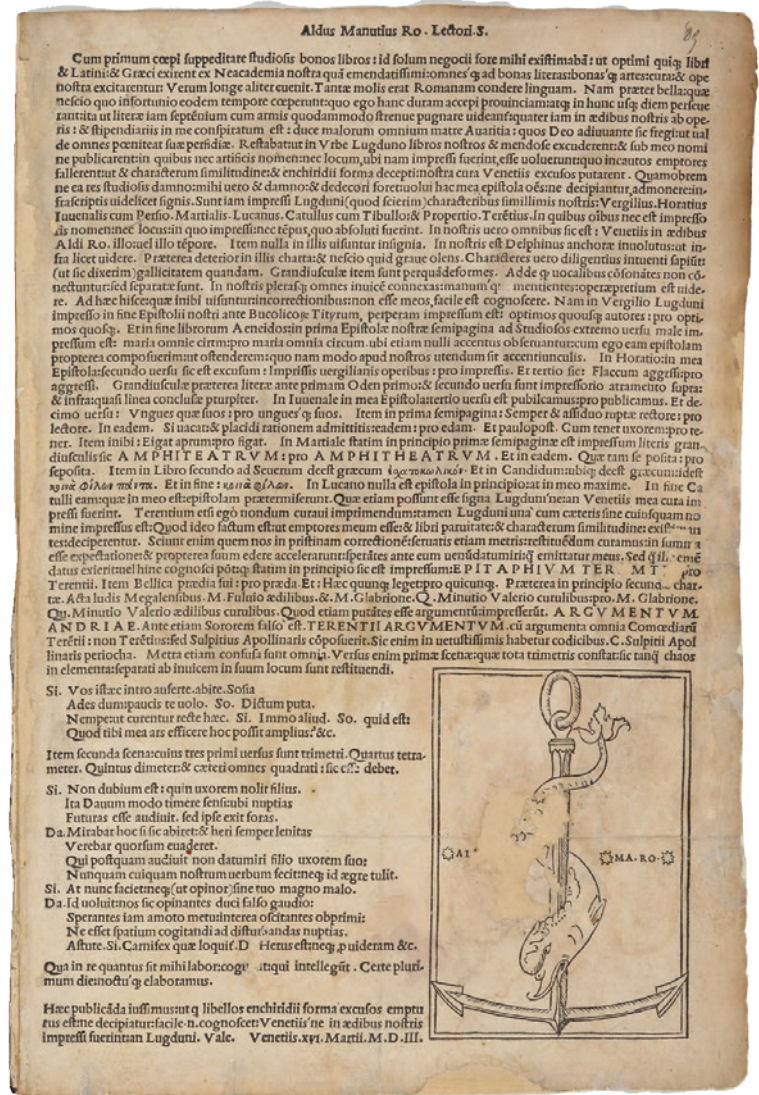 Aldus Manutius Ro. Lectori.S.
Cum primum cœpi suppeditare studiosis bonos libros: id solum negocii fore mihi existimabã: ut optimi quiq; libri
& Latini:& Græci exirent ex Neacademia nostra quã emendatissimi:omnes'q; ad bonas literas:bonas'q; artes:cura:& ope
nostra excitarentur: Verum longe aliter euenit. Tantæ molis erat Romanam condere linguam. Nam præter bella:quæ
nescio quo infortunio eodem tempore cœperunt:quo ego hanc duram accepi prouinciam:atq; in hunc usq; diem perseue
rant:ita ut literæ iam septẽnium cum armis quodammodo strenue pugnare uideant:quater iam in ædibus nostris ab ope-
ris: & stipendiariis in me conspiratum est: duce malorum omnium matre Auaritia: quos Deo adiuuante sic fregi:ut ual
de omnes pœniteat suæ perfidiæ. Restabat:ut in Vrbe Lugduno libros nostros & mendose excuderent:& sub meo nomi
ne publicarent:in quibus nec artificis nomen:nec locum,ubi nam impressi fuerint,esse uoluerunt:quo incautos emptores
fallerent:ut & characterum similitudine:& enchiridii forma decepti:nostra cura Venetiis excusos putarent. Quamobrem
ne ea res studiosis damno:mihi uero & damno:& dedecori foret:uolui hac mea epistola oẽs:ne decipiantur,admonere:in-
frascriptis uidelicet signis. Sunt iam impressi Lugduni(quod scierim)characteribus simillimis nostris:Vergilius.Horatius
Iuuenalis cum Persio. Martialis. Lucanus. Catullus cum Tibullo:& Propertio. Terẽtius.In quibus oĩbus nec est impresso
ris nomen:nec locus:in quo impressi:nec tẽpus,quo absoluti fuerint. In nostris uero omnibus sic est: Venetiis in ædibus
Aldi Ro. illo:uel illo tẽpore. Item nulla in illis uisuntur insignia. In nostris est Delphinus anchoræ inuolutus:ut in-
fra licet uidere. Præterea deterior in illis charta:& nescio quid graue olens. Characteres uero diligentius intuenti sapiũt:
(ut sic dixerim)gallicitatem quandam. Grandiusculæ item sunt perquãdeformes. Adde q; uocalibus cõsonãtes non cõ-
nectuntur:sed separatæ sunt. In nostris plerasq; omnes inuicẽ connexas:manum'q; mentientes:operæpretium est uide-
re. Ad hæc hisce:quæ inibi uisuntur:incorrectionibus:non esse meos,facile est cognoscere. Nam in Vergilio Lugduni
impresso in fine Epistolii nostri ante Bucolicoꝝ Tityrum, perperam impressum est: optimos quousq; autores: pro opti-
mos quosq;. Et in fine librorum Aeneidos:in prima Epistolæ nostræ semipagina ad Studiosos extremo uersu male im-
pressum est: maria omnie cirtm:pro maria omnia circum.ubi etiam nulli accentus obseruantur:cum ego eam epistolam
propterea composuerim:ut ostenderem:quo nam modo apud nostros utendum sit accentiunculis. In Horatio:in mea
Epistola:secundo uersu sic est excusum: Imprissis uergilianis operibus: pro impressis. Et tertio sic: Flaccum aggrssi:pro
aggressi. Grandiusculæ præterea literæ ante primam Oden primo:& secundo uersu sunt impressorio atramento supra:
& infra:quasi linea conclusæ pturpiter. In Iuuenale in mea Epistola:tertio uersu est pubilcamus:pro publicamus. Et de-
cimo uersu: Vngues quæ suos: pro ungues'q; suos. Item in prima semipagina: Semper & assiduo ruptæ rectore: pro
lectore. In eadem. Si uacat:& placidi rationem admittitis:eadem: pro edam. Et paulopost. Cum tenet uxorem:pro te-
ner. Item inibi: Eigat aprum:pro figat. In Martiale statim in principio primæ semipaginæ est impressum literis gran-
diusculis sic AMPHITEATRVM: pro AMPHITHEATRVM. Et in eadem. Quæ tam se posita: pro
seposita. Item in Libro secundo ad Seuerum deest græcum Et in Candidum:ubiq; deest græcum:idest
κοινὰ φίλων πάντα. Et in fine: κοινὰ φίλων. In Lucano nulla est epistola in principio:at in meo maxime. In fine Ca
tulli eam:quæ in meo est:epistolam prætermiserunt.Quæ etiam possunt esse signa Lugduni'ne:an Venetiis mea cura im
pressi fuerint. Terentium etsi ego nondum curaui imprimendum:tamen Lugduni unà cum cæteris sine cuiusquam no
mine impressus est:Quod ideo factum est:ut emptores meum esse:& libri paruitate:& characterum similitudine:
tes:deciperentur. Sciunt enim quem nos in pristinam correctionẽ:seruatis etiam metris:restituẽdum curamus:in summa
esse expectatione:& propterea suum edere accelerarunt:sperãtes ante eum uenũdatumiri:q̃ emittatur meus. Sed q̃
datus exierit:uel hinc cognosci põt:q; statim in principio sic est impressum:EPITAPHIVM TER pro
Terentii. Item Bellica prædia fui: pro præda. Et: Hæc quunq; leget:pro quicunq;. Præterea in principio char-
tæ. Acta ludis Megalensibus. M. Fuluio ædilibus.&.M.Glabrione. Q. Minutio Valerio curulibus:pro. M. Glabrione.
Qu. Minutio Valerio ædilibus curulibus. Quod etiam putãtes esse argumentũ:impresserũt. ARGVMENTVM
ANDRIAE. Ante etiam Sororem falso est. TERENTII ARGVMENTVM.cũ argumenta omnia Comœdiarũ
Terẽtii: non Terẽtius:sed Sulpitius Apollinaris cõposuerit. Sic enim in uetustissimis habetur codicibus. C. Sulpitii Apol
linaris periocha. Metra etiam confusa sunt omnia. Versus enim primæ scenæ:quæ tota trimetris constat:sic tanq̃ chaos
in elementa:separati ab inuicem in suum locum sunt restituendi.
Si. Vos istæc intro auferte.abite. Sosia
Ades dum:paucis te uolo. So. Dictum puta.
Nempe:ut curentur recte hæc. Si. Immo aliud. So. quid est:
Quod tibi mea ars efficere hoc possit amplius? &c.
Item secunda scena:cuius tres primi uersus sunt trimetri. Quartus tetra-
meter. Quintus dimeter:& cæteri omnes quadrati: sic esse debet.
Si. Non dubium est: quin uxorem nolit filius.
Ita Dauum modo timere sensi:ubi nuptias
Futuras esse audiuit. sed ipse exit foras.
Da. Mirabar hoc si sic abiret:& heri semper lenitas
Verebar quorsum euaderet.
Qui postquam audiuit non datumiri filio uxorem suo:
Nunquam cuiquam nostrum uerbum fecit:neq; id ægre tulit.
Si. At nunc faciet:neq;(ut opinor)sine tuo magno malo.
Da. Id uoluit:nos sic opinantes duci falso gaudio:
Sperantes iam amoto metu:interea oscitantes obprimi:
Ne esset spatium cogitandi ad disturbandas nuptias.
Astute. Si. Carnifex quæ loquit. D Herus est:neq; ꝓuideram &c.
Qua in re quantus sit mihi labor: qui intellegũt. Certe pluri-
mum die:noctu'q; elaboramus.
Hæc publicãda iussimus:ut q libellos enchiridii forma excusos emptu
rus est:ne decipiatur:facile.n.cognoscet:Venetiis'ne in ædibus nostris
impressi fuerint:an Lugduni. Vale. Venetiis.xvi. Martii. M. D. III.
AI
MA. RO.